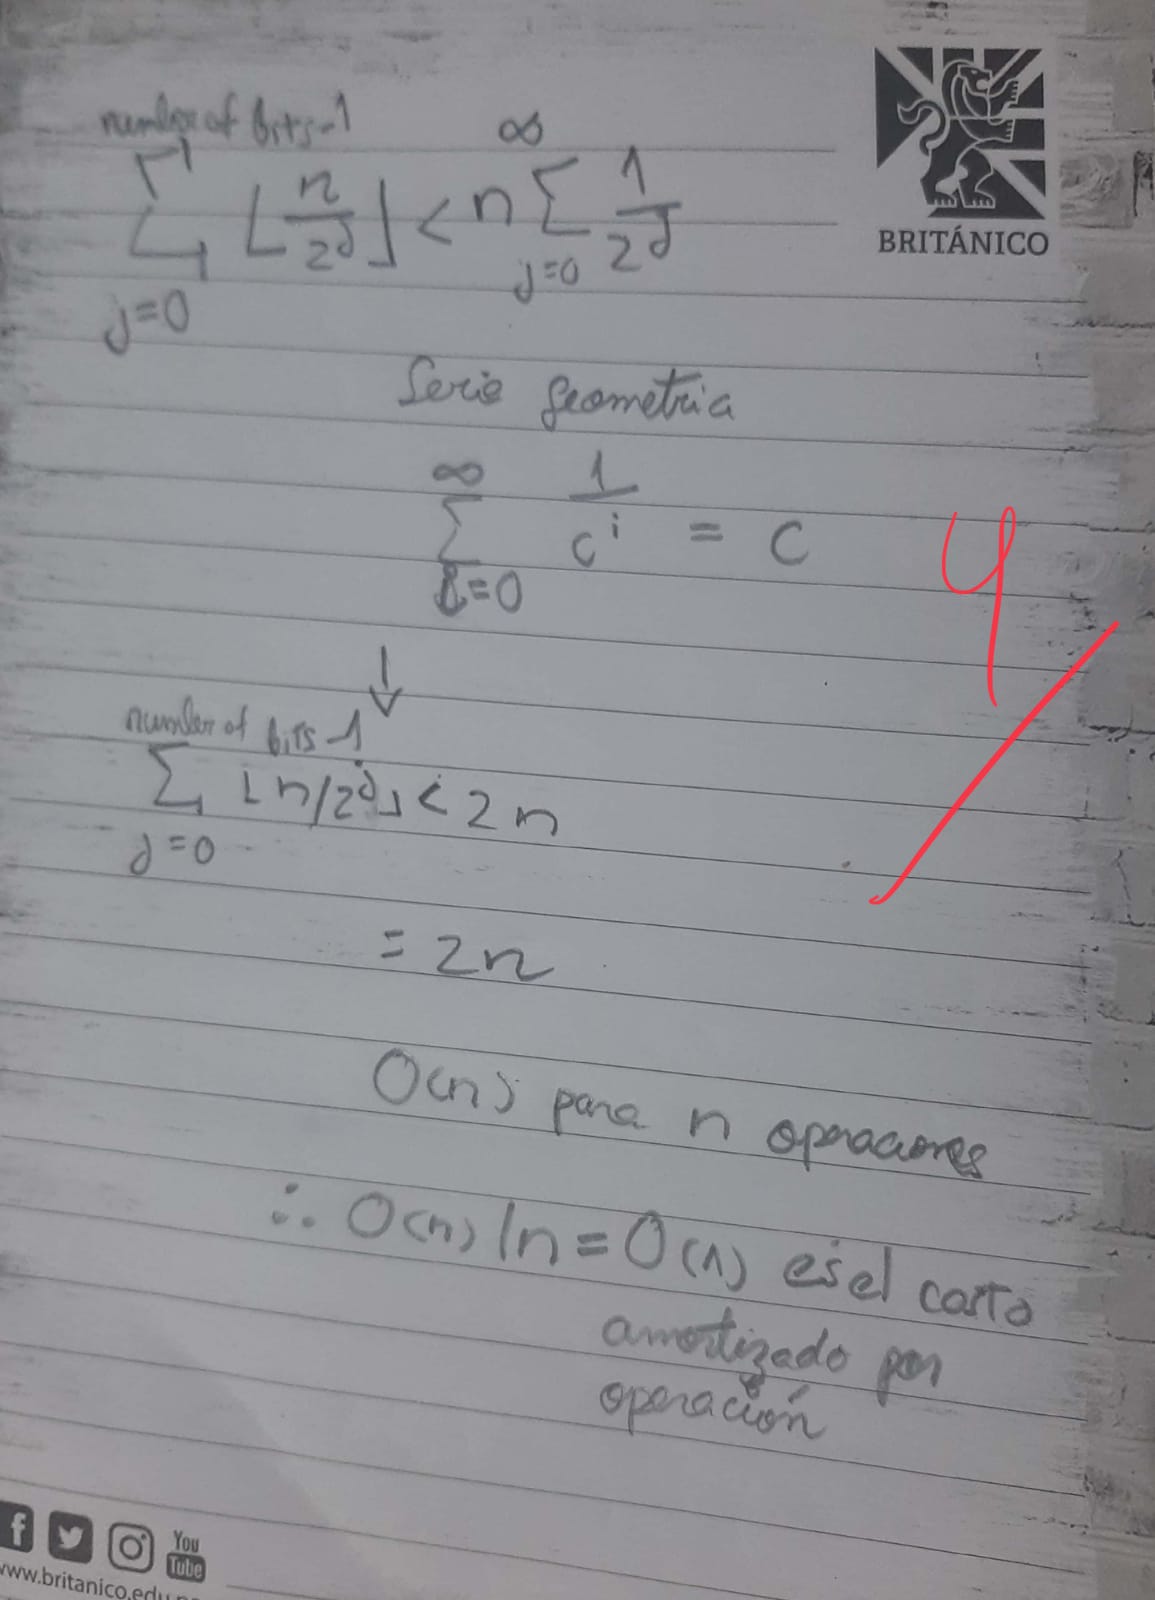 BRITÁNICO
number of bits-1
∑ ⌊n/2^j⌋ < n ∑ 1/2^j
j=0
∞
j=0
Serie geometria
∞
∑ 1/c^i = c
i=0
↓
number of bits-1
∑ ⌊n/2^j⌋ < 2n
j=0
= 2n
O(n) para n operaciones
∴ O(n)/n = O(1) es el costo
amortizado por
operación
4/
You
Tube
www.britanico.edu